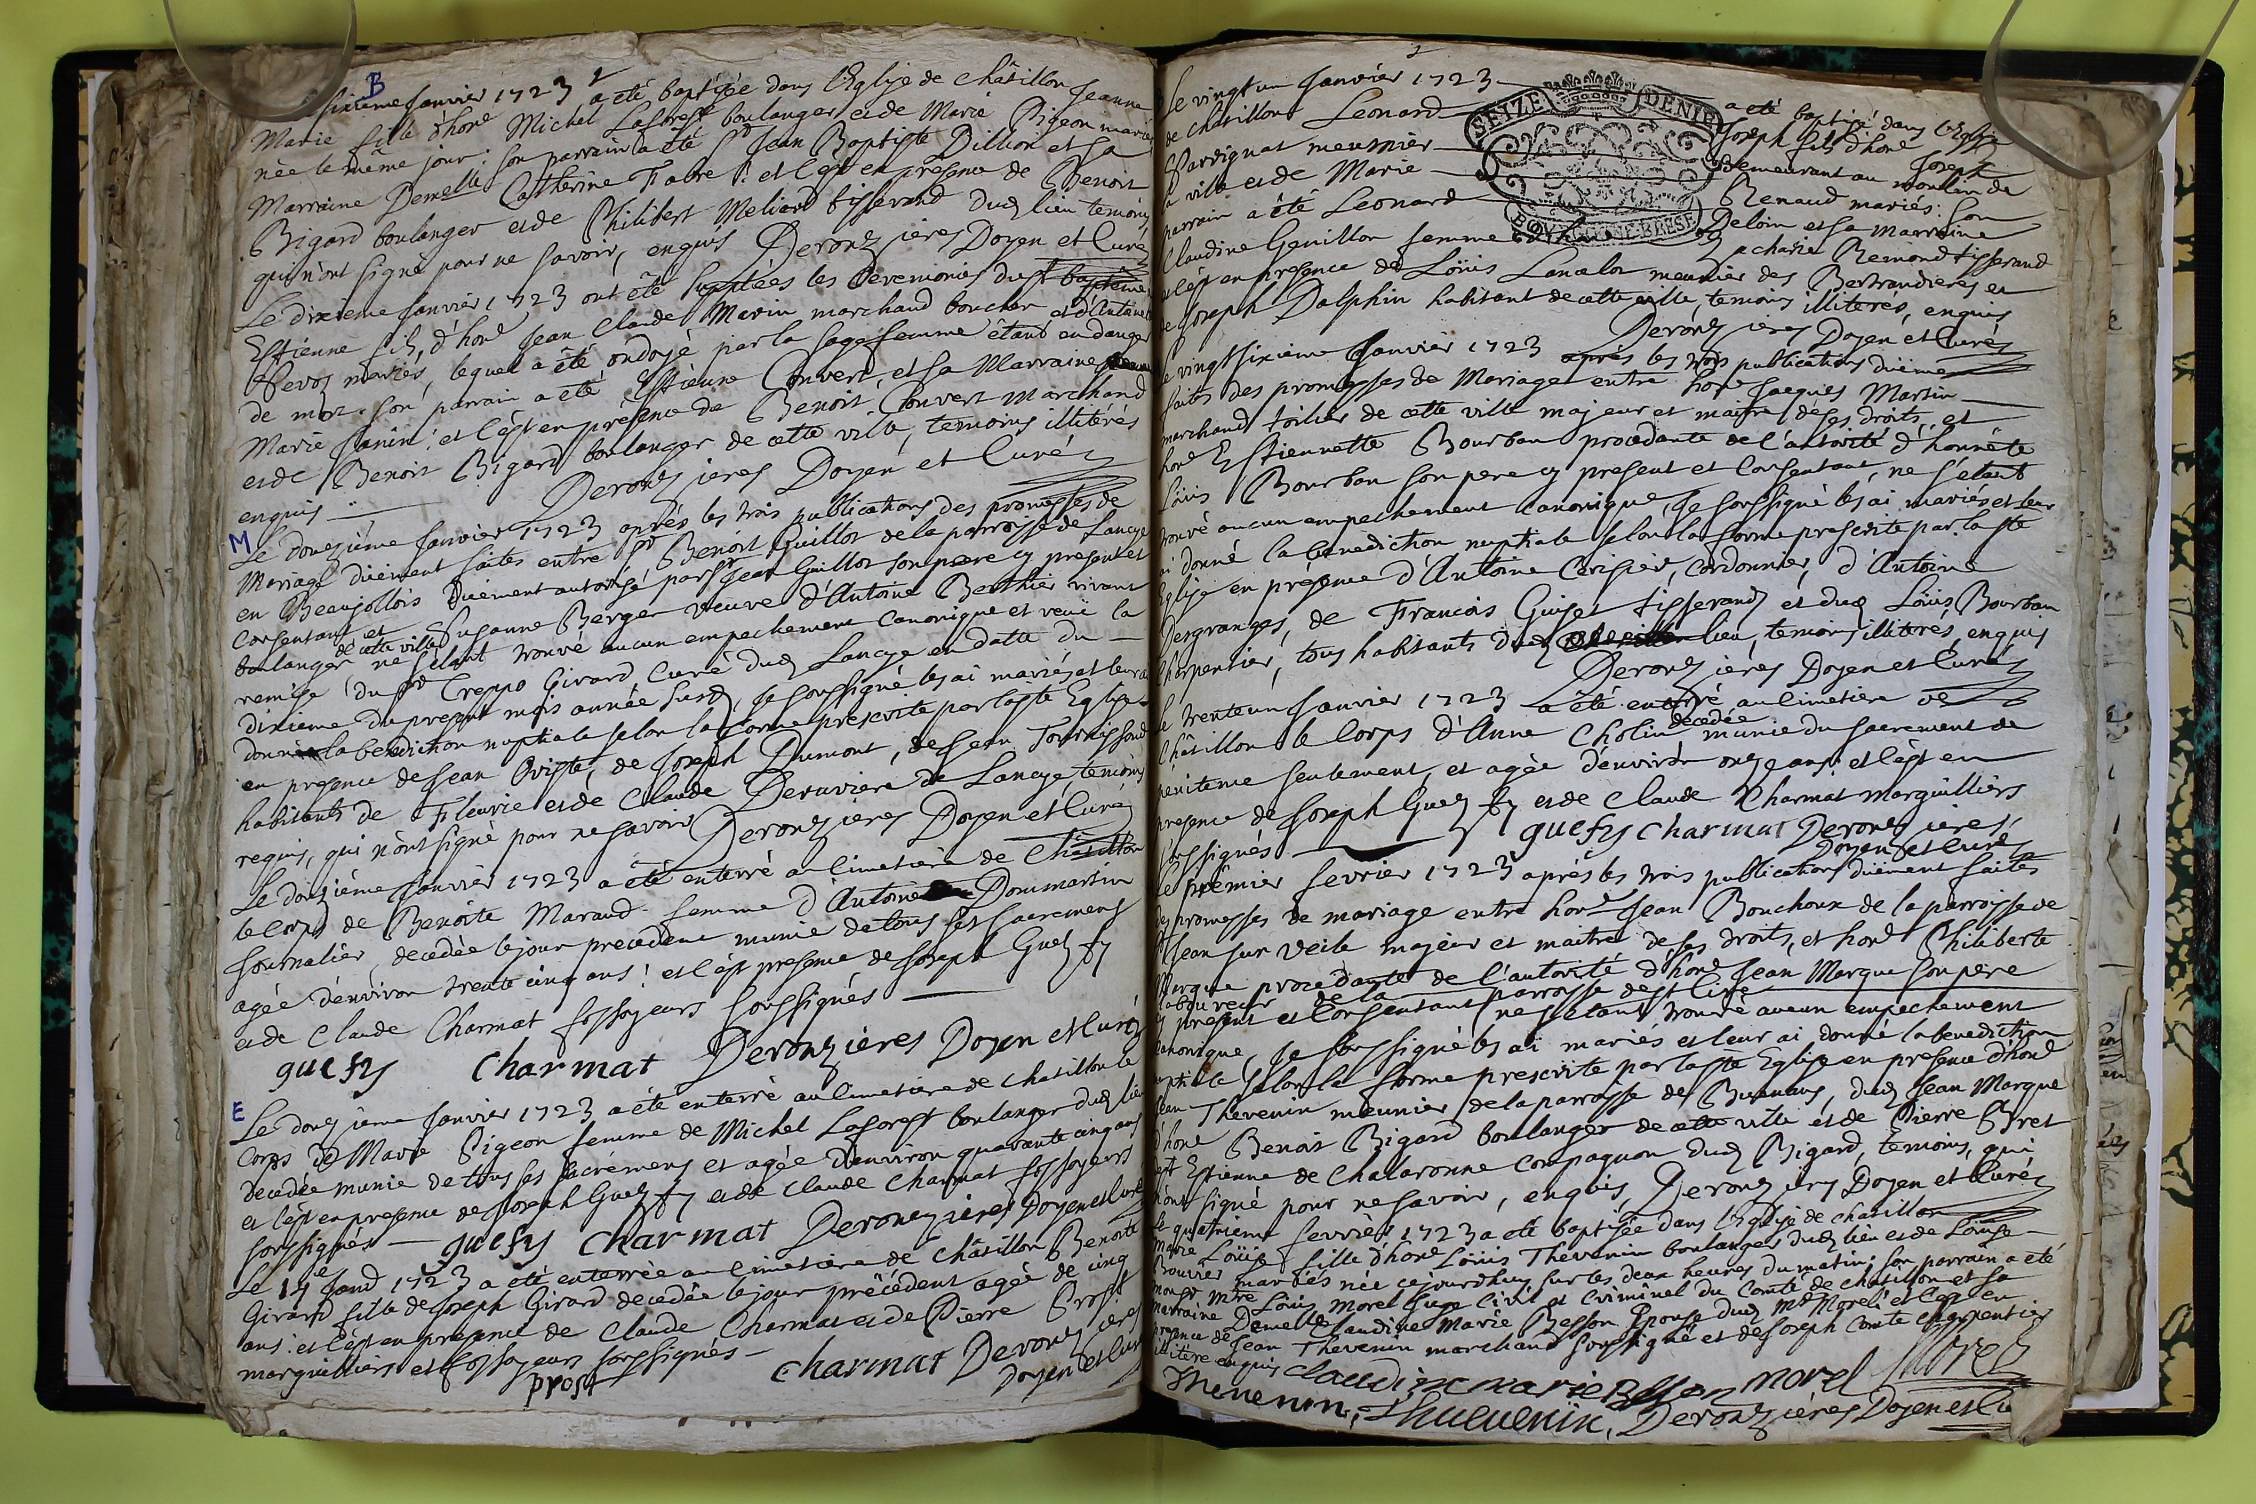 B
sixième Janvier 1723 a été baptisée dans l'Eglise de Châtillon Jeanne
Marie fille d'hone Michel Laforest boulanger et de Marie Pigeon mariés
née le même jour: son parrain a été Sr Jean Baptiste Dillion et sa
Marraine Demelle Catherine Fabre: et c'est en presence de Benoit
Bigard boulanger et de Philibert Meliard tisserand dud lieu temoins
qui n'ont signé pour ne savoir, enquis Deronzieres Doyen et Curé
Le dixieme Janvier 1723 ont été supplées les Ceremonies du St baptême
Estienne fils, d'hone Jean Claude Marin marchand boucher et d'Antoinette
Revos mariés, lequel a été ondoyé par la sage femme étant en danger
de mort. son parrain a été Estienne Convert, et sa Marraine
Marie Janin: et c'est en présence de Benoit Convert marchand
et de Benoit Bigard boulanger de cette ville, temoins illitérés
enquis Deronzieres Doyen et Curé
M
Le douzième Janvier 1723 après les trois publications des promesses de
Mariage düement faites entre Sr Benoit Guillot de la parroisse de Lancye
en Beaujollois düement autorisé par Sr Jean Guillot son pere cy present et
Consentant et Susanne Berger veuve d'Antoine Berthier vivant
boulanger de cette ville ne s'étant trouvé aucun empechement Canonique et veüe la
remise du Sr Creppo Girard Curé dud Lancye en datte du
dixieme du present mois année susd, Je soussigné les ai mariés et leur ai
donné la benediction nuptiale selon la forme prescrite par la Ste Eglise
en presence de Jean Oviste, de Joseph Dumont, de Jean Tournissoud
habitants de Fleurie et de Claude Deruviere de Lancye temoins
requis, qui n'ont signé pour ne savoir Deronzieres Doyen et Curé
Le douzième Janvier 1723 a été enterré au Cimetière de Châtillon
le Corps de Benoite Maraud femme d'Antoine Dommartin
Journalier, decedée le jour precedent munie de tous ses sacremens
agée d'environ trente cinq ans: et c'est presence de Joseph Guefy
et de Claude Charmat fossoyeurs soussignés
guefy charmat Deronzieres Doyen et Curé
E
Le douzieme Janvier 1723 a été enterré au Cimetière de Chatillon le
Corps de Marie Pigeon femme de Michel Laforest boulanger dud lieu
decedée munie de tous ses sacrémens et agée d'environ quarante cinq ans
et c'est en presence de Joseph Guefy et de Claude Charmat fossoyeurs
soussignés guefy charmat Deronzieres Doyen et Curé
Le Jand 1723 a été enterrée au Cimetière de Châtillon Benoite
Girard fille de Joseph Girard decedée le jour précédent agée de cinq
ans: et c'est en presence de Claude Charmat et de Pierre Prost
marguilliers et fossoyeurs soussignés
prost charmat Deronzieres
Doyen et Curé
Le vingt un Janvier 1723 a été baptisé dans l'Eglise
de châtillon Leonard Joseph fils d'hone Joseph
Pardignat meusnier demeurant au moulin de
la ville et de Marie Renaud mariés: son
parrain a été Leonard Deloin et sa marraine
Claudine Genillon femme Zacharie Remond tisserand
et c'est en presence de Loüis Lancelot meusnier des Bertrandieres et
de Joseph Dalphin habitant de cette ville, temoins illiterés, enquis
Deronzieres Doyen et Curé
Le vingt sixieme Janvier 1723 après les trois publications düement
faites des promesses de Mariage entre hone Jacques Martin
marchand toilier de cette ville majeur et maitre de ses droits, et
hone Estiennette Bourbon procedante de l'autorité d'honnête
Loüis Bourbon son pere cy present et Consentant, ne s'étant
trouvé aucun empechement Canonique, Je soussigné les ai mariés et leur
ai donné la benediction nuptiale selon la forme prescrite par la Ste
Eglise en présence d'Antoine Cerisier, Cordonnier, d'Antoine
Desgranges, de François Guiset tisserand et dud Loüis Bourbon
Charpentier, tous habitants dud lieu, temoins illiterés, enquis
Deronzieres Doyen et Curé
Le trente un Janvier 1723 a été enterré au Cimetiere de
Châtillon le Corps d'Anne Cholin decedée munie du sacrement de
pénitence seulement, et agée d'environ onze ans: et c'est en
presence de Joseph Guefy et de Claude Charmat marguilliers
soussignés guefy charmat Deronzieres
Doyen et Curé
Le prémier fevrier 1723 après les trois publications düement faites
des promesses de mariage entre hone Jean Bouchoux de la parroisse de
St Jean sur Veile majeur et maitre de ses droits, et hone Philiberte
Marque procedante de l'autorité d'hone Jean Marque son pere
laboureur de la parroisse de St Cire
cy present et Consentant, ne s'étant trouvé aucun empechement
Canonique, Je soussigné les ai mariés et leur ai donné la benediction
nuptiale selon la forme prescrite par la Ste Eglise en presence d'hone
Jean Thevenin meunier de la parroisse de Buenans, dud Jean Marque
d'hone Benoit Bigard boulanger de cette ville et de Pierre Bret
de St Estienne de Chalaronne Compagnon dud Bigard, temoins, qui
n'ont signé pour ne savoir, enquis, Deronzieres Doyen et Curé
Le quatrieme fevrier 1723 a été baptisée dans l'Eglise de chatillon
Marie Loüise fille d'hone Loüis Thevenin boulanger dud lieu et de Loüise
Bouvier mariés née cejourdhuy sur les deux heures du matin; son parrain a été
Monsr Mtre Loüis Morel Juge Civil et Criminel du Comté de chatillon et sa
marraine Demelle Claudine Marie Besson Epouse dud Mr Morel: et c'est en
presence de Jean Thevenin marchand soussigné et de Joseph Comte charpentier
illitéré enquis claudine marie Besson morel Morel
Thevenin, Thevenin, Deronzieres Doyen et Cu
SEIZE DENIE
BOURGOGNE BRESSE